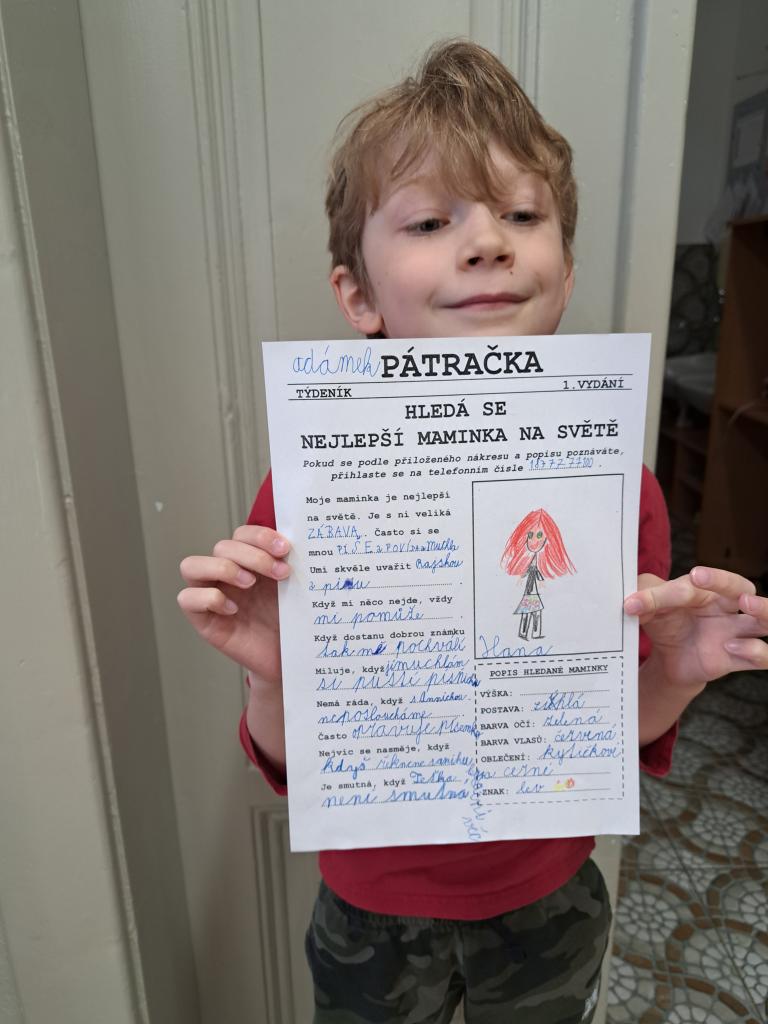 adámek PÁTRAČKA
TÝDENÍK 1.VYDÁNÍ
HLEDÁ SE
NEJLEPŠÍ MAMINKA NA SVĚTĚ
Pokud se podle přiloženého nákresu a popisu poznáváte,
přihlaste se na telefonním čísle
Moje maminka je nejlepší
na světě. Je s ní veliká
ZÁBAVA. Často si se
mnou PÍŠE
Umí skvěle uvařit Rajskou
Když mi něco nejde, vždy
mi pomůže
Když dostanu dobrou známku
tak mě pochválí
Miluje, když
si pustí
Nemá ráda, když s Aničkou
neposloucháme
Často opravuje
Nejvíc se nasměje, když
když řekneme
Je smutná, když
není smutná
Hana
POPIS HLEDANÉ MAMINKY
VÝŠKA:
POSTAVA: štíhlá
BARVA OČÍ: zelená
BARVA VLASŮ: červená
OBLEČENÍ: kytičkové
černé
ZNAK: lev